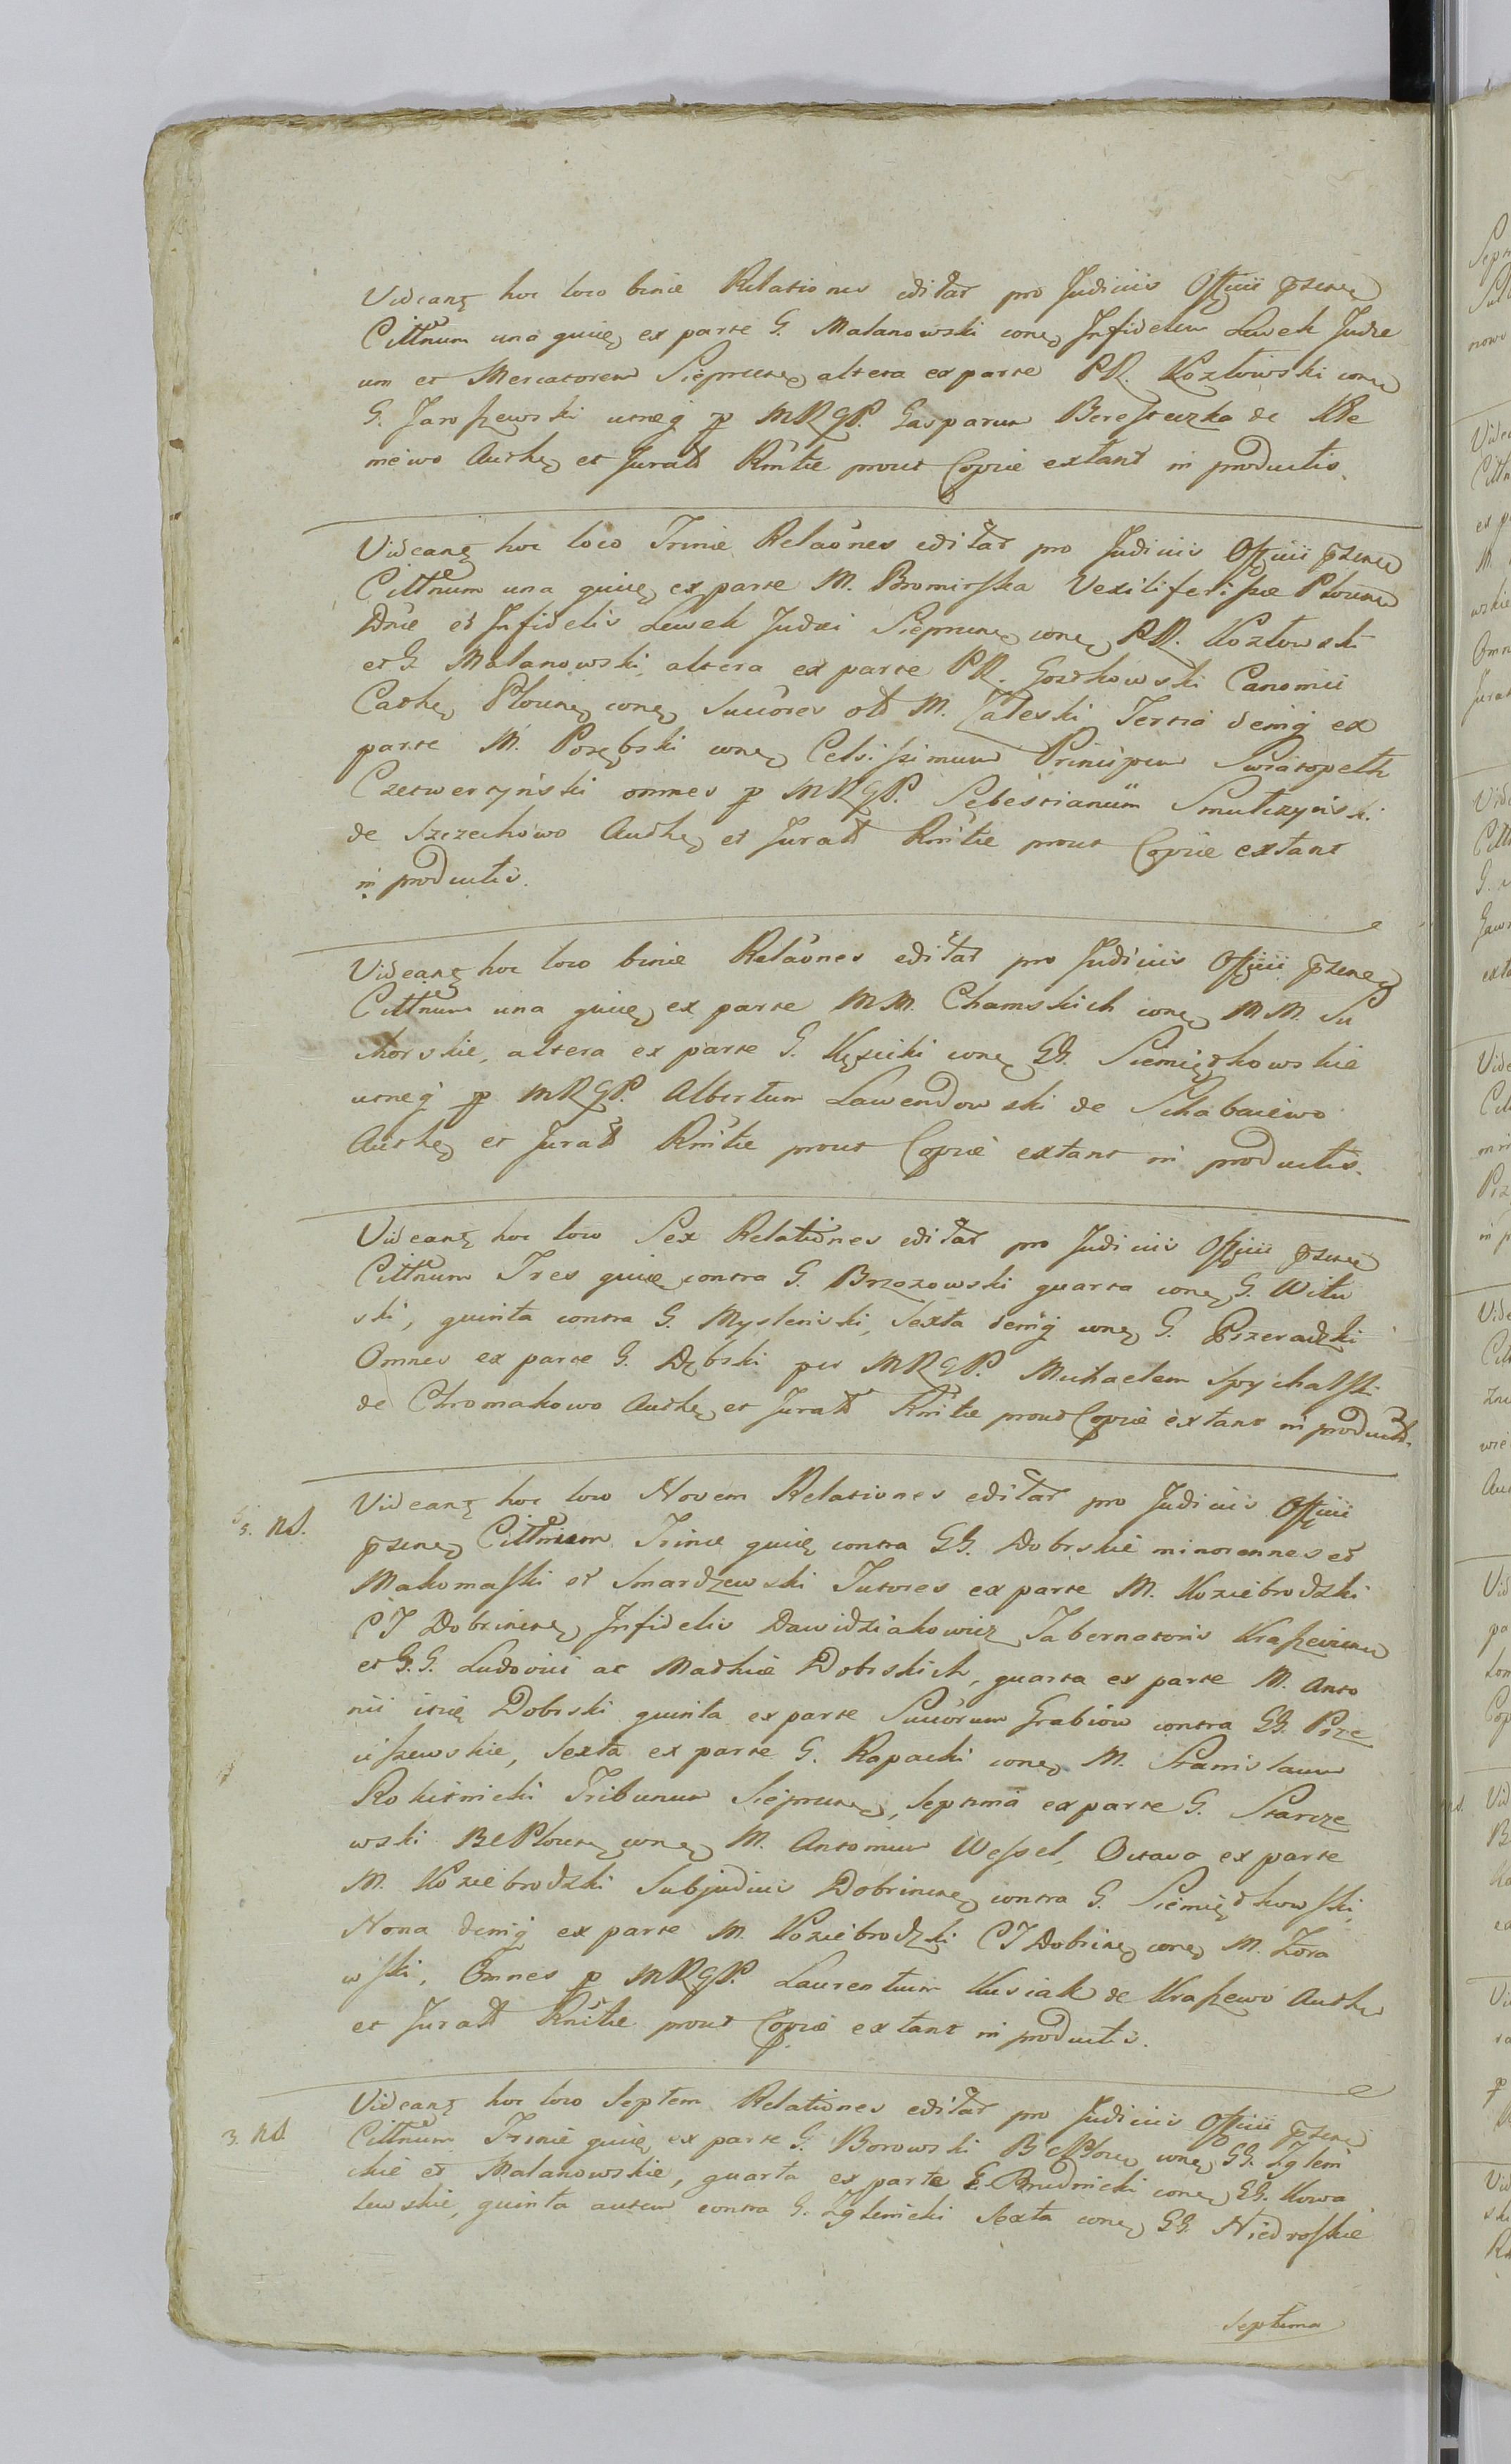 Videant hoc loco binæ Relationes edittar pro Judiciis Officii psenę
Cittnum una quię ex parte G. Malanowski conę Infidelem Lewek Judæ
um et Mercatorem Sieprcen altera ex parte PR. Kozłowski conę
G. Jaroszewski utræq p MRGP. Gasparum Beresteczka de Kle
niewo Authę et Juratt Rmtæ prout Copiæ extant in productis.
Videant hoc loco Trinæ Relaones edittar pro Judiciis Officii psenę
Cittnum una quię ex parte M. Bromirska Vexiliferissæ Plocens
Dnæ et Infidelis Lewek Judæi Sieprcenę conę PR. Kozłowski
et G Malanowski, altera ex parte PR. Gozdkowski Canonici
Cathę Plocenę conę Succores ol M. Zaleski Tertia deniq ex
parte M. Porębski conę Celsissimum Principem Swiatopełk
Czetwertyński omnes p MRGP. Sebestianum Smulczyński
de Szczechowo Authę et Juratt Rmtæ prout Copiæ extant
in productis.
Videant hoc loco binæ Relaones edittar pro Judiciis Officii psenę
Cittnum una quię ex parte MM. Chamskich conę MM. Su
chorskie, altera ex parte G. Kęsicki conę GG. Siemiątkowskie
utræq p MRGP. Albertum Lawendowski de Schabaiewo
Authę et Juratt Rmtæ prout Copiæ extant in productis.
Videant hoc loco Sex Relationes edittar pro Judiciis Officii psenę
Cittnum Tres quię contra G. Brzozowski quarta conę G. Witu
ski, quinta contra G. Mysleński, Sexta deniq conę G. Pszeradzki
Omnes ex parte G. Dębski per MRGP. Michaelem Spychalski
de Chromakowo Authę et Juratt Rmtæ prout Copiæ extant in product.
5. nd. Videant hoc loco Novem Relationes edittar pro Judiciis Officii
psenę Cittnum Trinæ quię contra GG. Dobrskie minorennes et
Makomaski et Smardzewski Tutores ex parte M. Koziebrodzki
CT Dobrinenę Infidelis Dawidziakowicz Tabernatoris Kraszevienę
et G.G. Ludovici ac Mathiæ Dobrskich, quarta ex parte M. Anto
nii itię Dobrski quinta ex parte Succorum Grabiów contra GG. Prze
ciszewskie, Sexta ex parte G. Rapacki conę M. Stanislaum
Rokitnicki Tribunum Sieprcenę, Septima ex parte G. Starcze
wski BCPlocenę conę M. Antonium Wessel, Octava ex parte
M. Koziebrodzki Subjudicis Dobrinenę contra G. Siemiątkowski,
Nona deniq ex parte M. Koziebrodzki CT Dobrinę conę M. Zora
wski, Omnes p MRGP. Laurentium Kusiak de Kraszewo Authę
et Juratt Rmtæ prout Copiæ extant in productis.
3. nd. Videant hoc loco Septem Relationes edittar pro Judiciis Officii psenę
Cittnum Trinæ quię ex parte G. Borowski BCPloc conę GG. Zgleni
ckie et Malanowskie, quarta ex parte G. Brudnicki conę GG. Kowa
lewskie, quinta autem contra G. Zglenicki Sexta conę GG Niedroskie
Septima